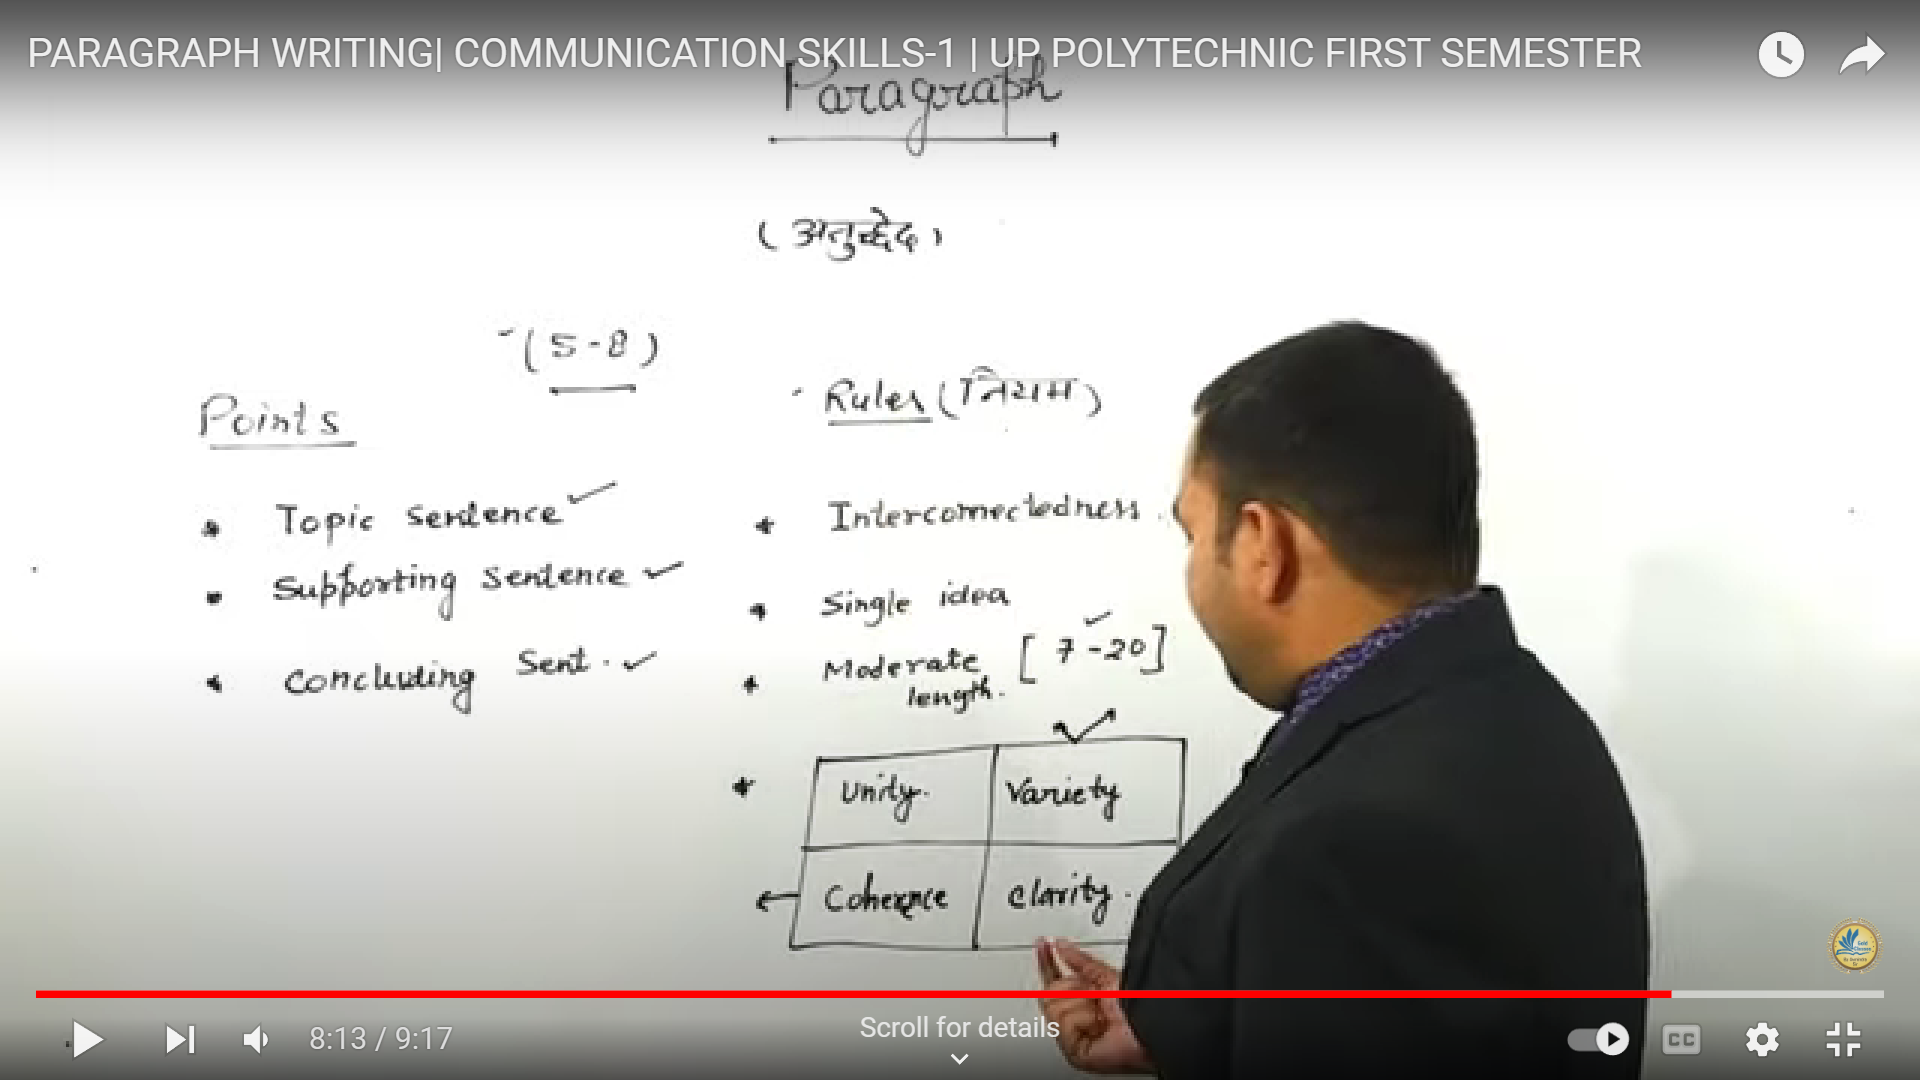 PARAGRAPH WRITING| COMMUNICATION SKILLS-1 | UP POLYTECHNIC FIRST SEMESTER
Paragraph
(अनुच्छेद)
(5-8)
Points
Rules (नियम)
Topic sentence
Supporting sentence
Concluding Sent.
Interconnectedness
Single idea
Moderate length. [7-20]
Unity. Variety
Coherence Clarity.
8:13 / 9:17
Scroll for details
CC